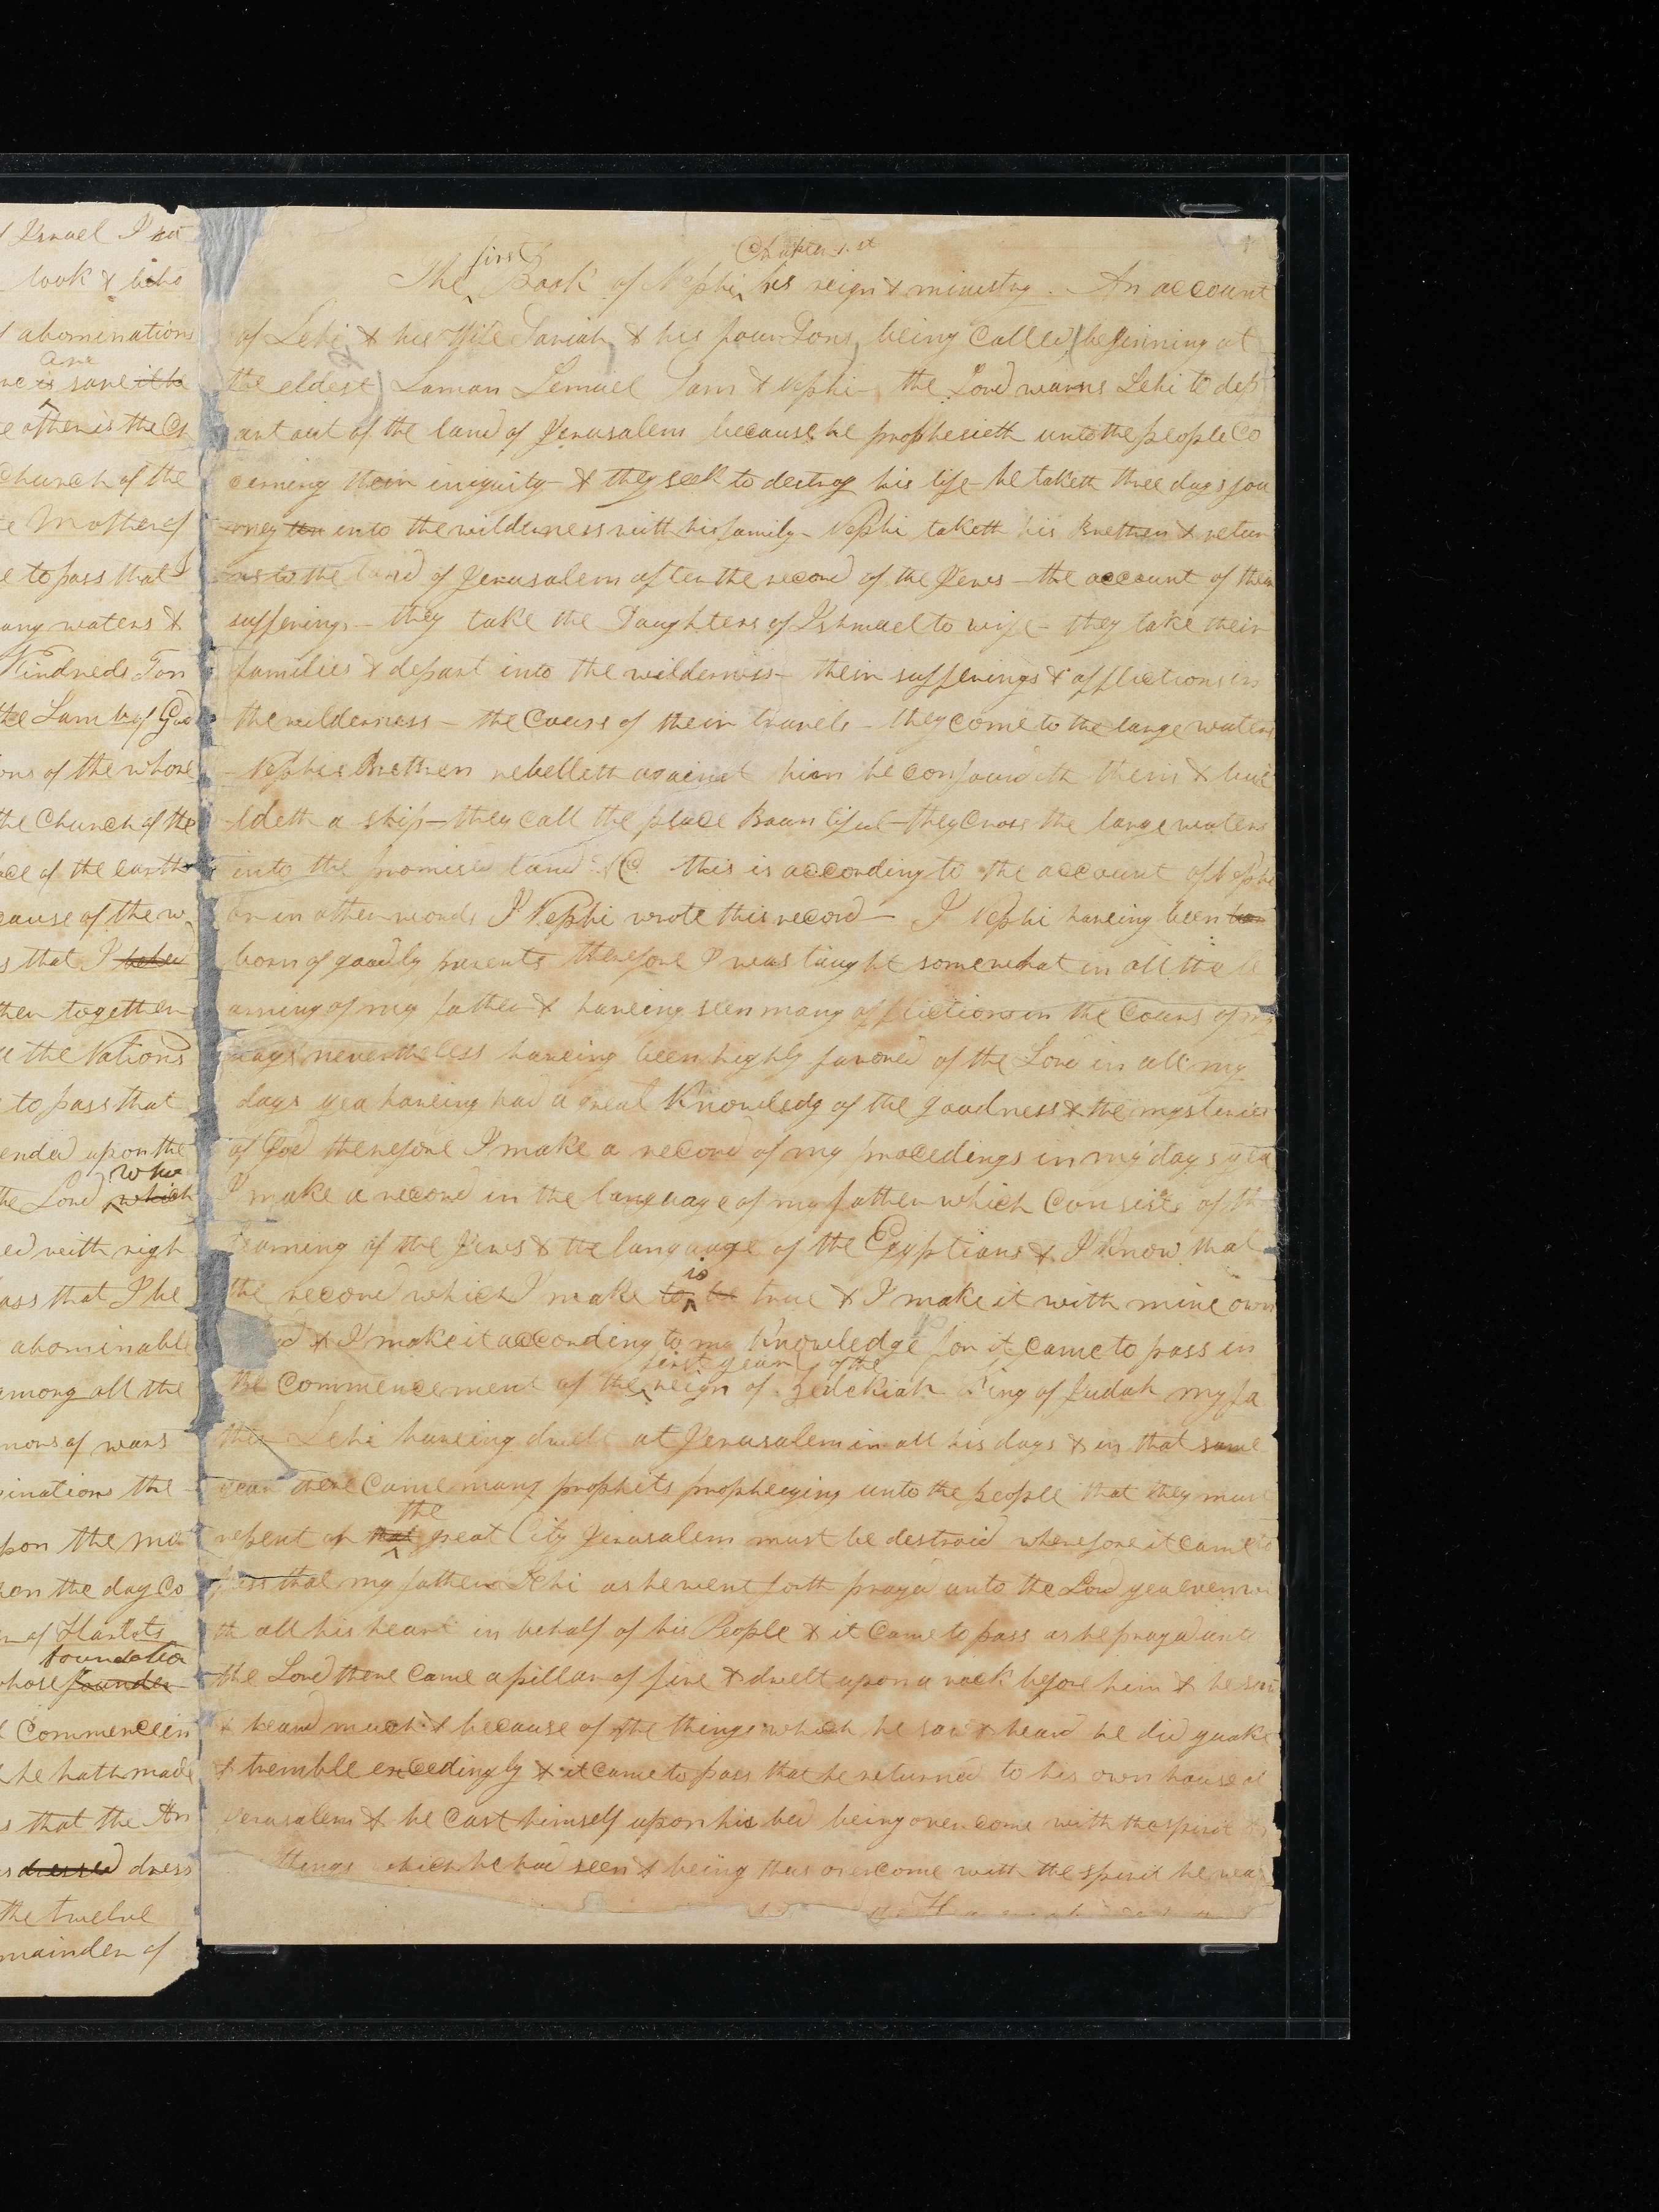 f Israel I
look & beho
abominations
are
is save it be
other is the Ch
Church of the
Mother of
e to pass that I
any waters &
Kindreds Ton
the Lamb of God
ons of the whore
the Church of the
ace of the earth
cause of the w
s that I behel
ther together
the Nations
to pass that
ended upon the
who
the Lord which
ed with righ
ass that I be
abominable
among all the
mors of wars
inations the
pon the mo
on the day Co
of Harlots
foundatio
whose founder
Commence in
he hath made
s that the An
dressed dress
the twelve
mainder of
Chapter 1st
first
The Book of Nephi his reign & ministry. An account
of Lehi & his Wife Sariah & his four Sons being Called (beginning at
the eldest) Laman Lemuel Sam & Nephi- the Lord warns Lehi to dep
art out of the land of Jerusalem because he prophesieth unto the people Co
cerning their iniquity- & they seek to destroy his life- he taketh three days jou
rney into the wilderness with his family- Nephi taketh his Brethren & retur
ns to the land of Jerusalem after the record of the Jews- the account of their
sufferings- they take the Daughters of Ishmael to wife- they take their
families & depart into the wilderness- their sufferings & afflictions in
the wilderness- the Cours of their travels- they come to the large waters
- Nephis Brethren rebelleth against him he confoundeth them & buil
ldeth a ship- they call the place Bountiful- they Cross the large waters
into the promised land &C this is according to the account of Nephi
or in other words I Nephi wrote this record- I Nephi haveing been
born of goodly parents therefore I was taught somewhat in all the le
arning of my father & haveing seen many afflictions in the Cours of my
days nevertheless haveing been highly favored of the Lord in all my
days yea haveing had a great Knowledg of the goodness & the mysteries
of God therefore I make a record of my procedings in my days yea
I make a record in the language of my father which Consists of the
learning of the Jews & the language of the Egyptians & I Know that
is
the record which I make to be true & I make it with mine own
& I make it according to my Knowledge for it Came to pass in
first year of the
the Commencement of the reign of Zedekiah King of Judah my fa
ther Lehi haveing dwelt at Jerusalem in all his days & in that same
year there Came many prophets prophecying unto the people that they must
the
repent or that great City Jerusalem must be destroid wherefore it came to
pass that my father Lehi as he went forth prayed unto the Lord yea even wi
th all his heart in behalf of his People & it Came to pass as he prayed unto
the Lord there Came a pillar of fire & dwelt upon a rock before him & he saw
& heard much & because of the things which he saw & heard he did quake
& tremble excedingly & it came to pass that he returned to his own house at
Jerusalem & he Cast himself upon his bed being overcome with the spirit
things which he had seen & being thus overcome with the spirit he was